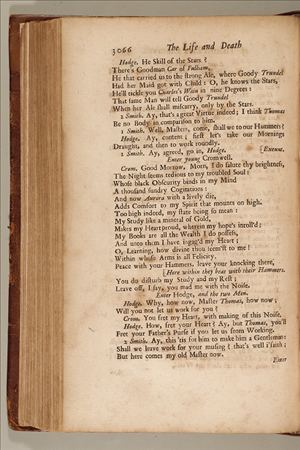 3066 The Life and Death
Hodge. He Skill of the Stars ?
There's Goodman Car of Fulham,
He that carried us to the strong Ale, where Goody Trundel
Had her Maid got with Child : O, he knows the Stars,
He'll tickle you Charles's Wain in nine Degrees :
That same Man will tell Goody Trundel
When her Ale shall miscarry, only by the Stars.
2 Smith. Ay, that's a great Virtue indeed; I think Thomas
Be no Body in comparison to him.
1 Smith. Well, Masters, come, shall we to our Hammers?
Hodge. Ay, content ; first let's take our Mornings
Draught, and then to work roundly.
2 Smith. Ay, agreed, go in, Hodge. [Exeunt.
Enter young Cromwell.
Crom. Good Morrow, Morn, I do salute thy brightness,
The Night seems tedious to my troubled Soul :
Whose black Obscurity binds in my Mind
A thousand sundry Cogitations :
And now Aurora with a lively die,
Adds Comfort to my Spirit that mounts on high.
Too high indeed, my state being so mean :
My Study like a mineral of Gold,
Makes my Heart proud, wherein my hope's inroll'd ;
My Books are all the Wealth I do possess,
And unto them I have ingag'd my Heart ;
O, Learning, how divine thou seem'st to me !
Within whose Arms is all Felicity.
Peace with your Hammers, leave your knocking there,
[Here within they beat with their Hammers.
You do disturb my Study and my Rest ;
Leave off, I say, you mad me with the Noise.
Enter Hodge, and the two Men.
Hodge. Why, how now, Master Thomas, how now ;
Will you not let us work for you ?
Crom. You fret my Heart, with making of this Noise.
Hodge. How, fret your Heart? Ay, but Thomas, you'll
Fret your Father's Purse if you let us from Working.
2 Smith. Ay, this 'tis for him to make him a Gentleman:
Shall we leave work for your musing ? that's well i'faith :
But here comes my old Master now.
Enter